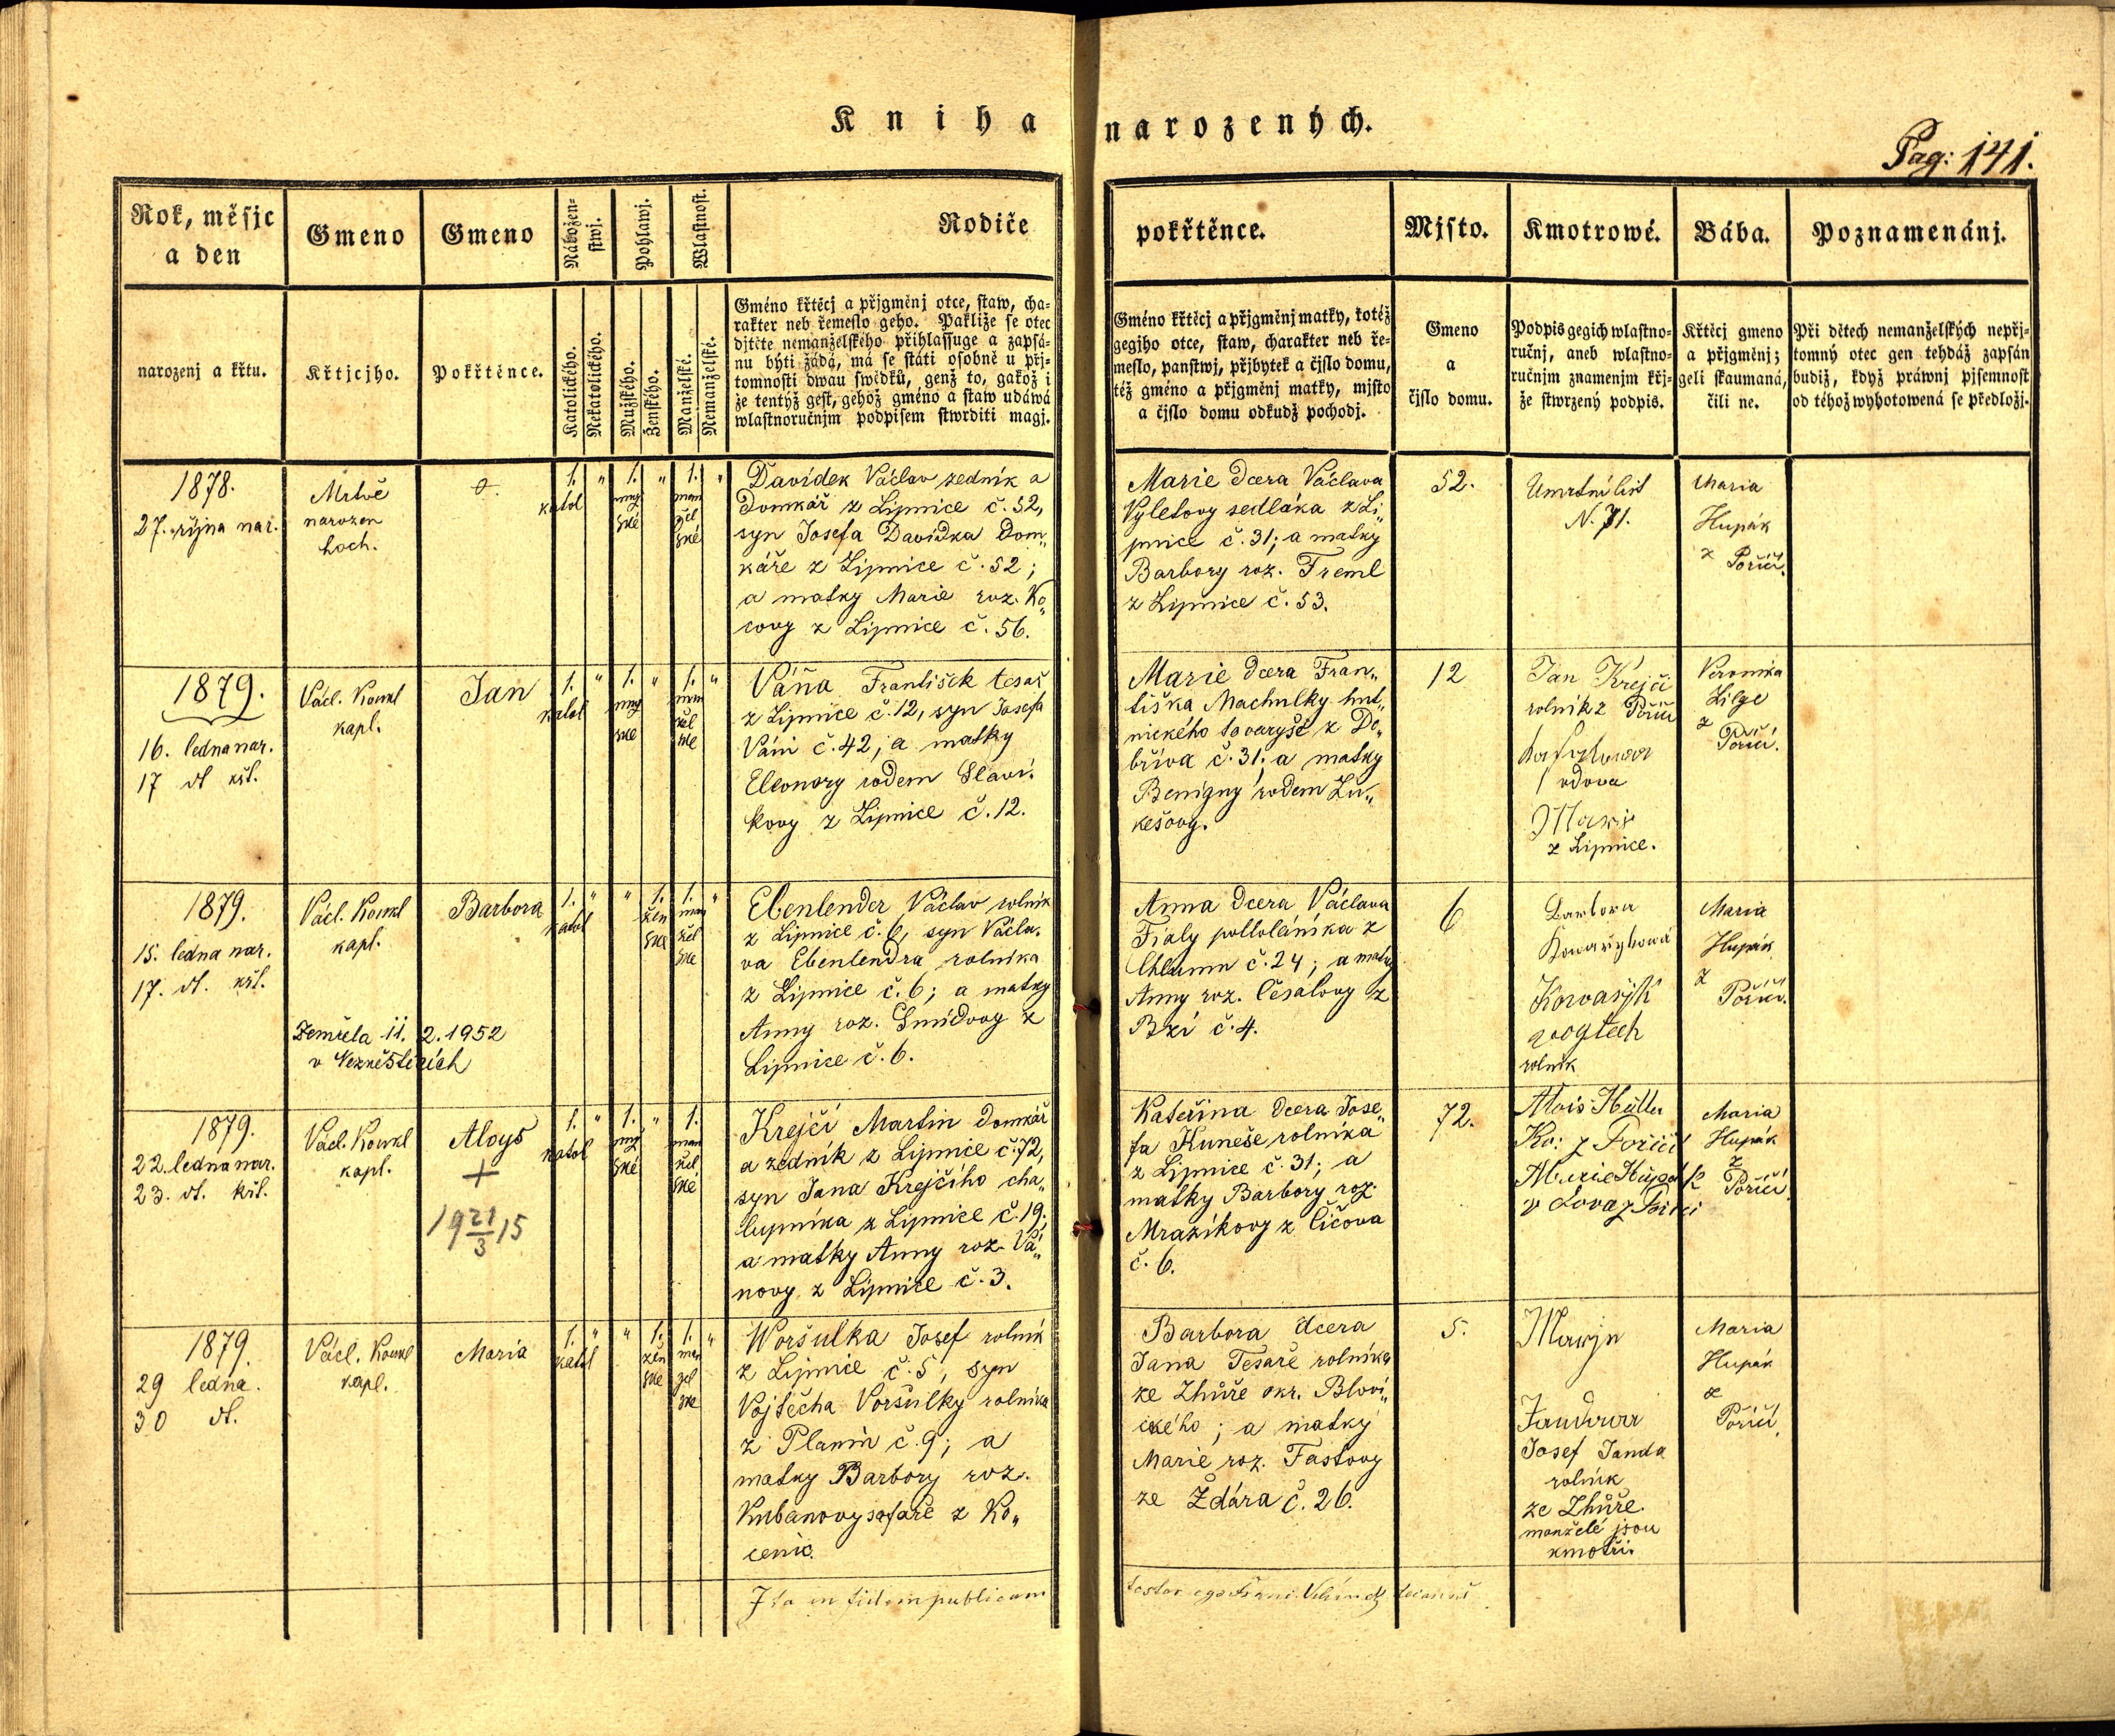 Kniha narozených.
Pag: 141.
Rok, měsjc a den
Gmeno
Gmeno
Náboženstwj.
Pohlawj.
Wlastnost.
Rodiče
pokřtěnce.
Mjsto.
Kmotrowé.
Bába.
Poznamenánj.
narozenj a křtu.
Křtjcjho.
Pokřtěnce.
Katolického.
Nekatolického.
Mužského.
Ženského.
Manželské.
Nemanželské.
Gméno křtěcj a přjgměnj otce, staw, cha-
rakter neb řemeslo geho. Pakliže se otec
djtěte nemanželského přihlassuge a zapsá-
nu býti žádá, má se státi osobně u přj-
tomnosti dwau swědků, genž to, gakož i
že tentýž gest, gehož gméno a staw udáwá
wlastnoručnjm podpisem stwrditi magj.
Gméno křtěcj a přjgměnj matky, totéž
gegjho otce, staw, charakter neb ře-
meslo, panstwj, přjbytek a čjslo domu,
též gméno a přjgměnj matky, mjsto
a čjslo domu odkudž pochodj.
Gmeno
a
čjslo domu.
Podpis gegich wlastno-
ručnj, aneb wlastno-
ručnjm znamenjm křj-
že stwrzený podpis.
Křtěcj gmeno
a přjgměnj;
geli skaumaná,
čili ne.
Při dětech nemanželských nepřj-
tomný otec gen tehdáž zapsán
budiž, když práwnj pjsemnost
od téhož wyhotowená se předložj.
1878.
27. října nar.
Mrtvě
narozen
hoch.
1. " 1. " 1. "
katol
muž
ské
man
žel
ské
Davídek Václav zedník a
Domkář z Lipnice č. 52,
syn Josefa Davídka Dom„
káře z Lipnice č. 52;
a matky Marie roz. Ko„
covy z Lipnice č. 56.
Marie dcera Václava
Vyletovy sedláka z Li„
pnice č. 31; a matky
Barbory roz. Treml
z Lipnice č. 53.
52.
Umrtní list
N. 71.
Maria
Hupák
z Poříčí.
1879.
16. ledna nar.
17 dt křt.
Václ. Koukl
kapl.
Jan
1. " 1. " 1. "
katol
muž
ské
man
žel
ské
Váňa František tesař
z Lipnice č. 12, syn Josefa
Váni č. 42; a matky
Eleonory rodem Slaví-
kovy z Lipnice č. 12.
Marie dcera Fran„
tiška Machulky hut„
nického tovaryše z Do„
bříva č. 31; a matky
Benigny rodem Lu„
kešovy.
12
Jan Krejčí
rolník z Poříčí
vdova
Marie
z Lipnice.
Veronika
Lilge
z
Poříčí.
1879.
15. ledna nar.
17. dt. křt.
Václ. Koukl
kapl.
Barbora
Zemřela 11. 2. 1952
v Nezvěsticích
1. " " 1. 1. "
katol
žen
ské
man
žel
ské
Ebenlender Václav rolník
z Lipnice č. 6, syn Václa-
va Ebenlendra rolníka
z Lipnice č. 6; a matky
Anny roz. Smídovy z
Lipnice č. 6.
Anna dcera Václava
Fialy pololáníka z
Chlumu č. 24; a matky
Anny roz. Česalovy z
Bzí č. 4.
6
Barbora
Kowaříkowá
Kovařík
rolník
Maria
Hupák
z
Poříčí.
1879.
22. ledna nar.
23. dt. křt.
Václ. Koukl
kapl.
Aloys
+
19 21/3 15
1. " 1. " 1.
katol
muž
ské
man
žel
ské
Krejčí Martin domkář
a zedník z Lipnice č. 72,
syn Jana Krejčího cha„
lupníka z Lipnice č. 19;
a matky Anny roz. Vá„
novy z Lipnice č. 3.
Kateřina dcera Jose„
fa Kuneše rolníka
z Lipnice č. 31; a
matky Barbory roz.
Mrazíkovy z Číčova
č. 6.
72.
Alois
Ko: z Poříčí
Marie Hupák
vdova z Poříčí
Maria
Hupák
z
Poříčí
1879.
29 ledna.
30 dt.
Václ. Koukl
kapl.
Maria
1. " " 1. 1. "
katol
žen
ské
man
žel
ské
Woršulka Josef rolník
z Lipnice č. 5, syn
Vojtěcha Voršulky rolníka
z Planin č. 9; a
matky Barbory roz.
Kubanovy šafáře z Ko„
cenic.
Barbora dcera
Jana Tesaře rolníka
ze Zhůře okr. Blovi„
ckého; a matky
Marie roz. Fastovy
ze Ždára č. 26.
5.
Marje
Jandowa
Josef Janda
rolník
ze Zhůře
manželé jsou
kmotři.
Maria
Hupák
z
Poříčí.
Ita in fidem publicam
testor ego Franc.